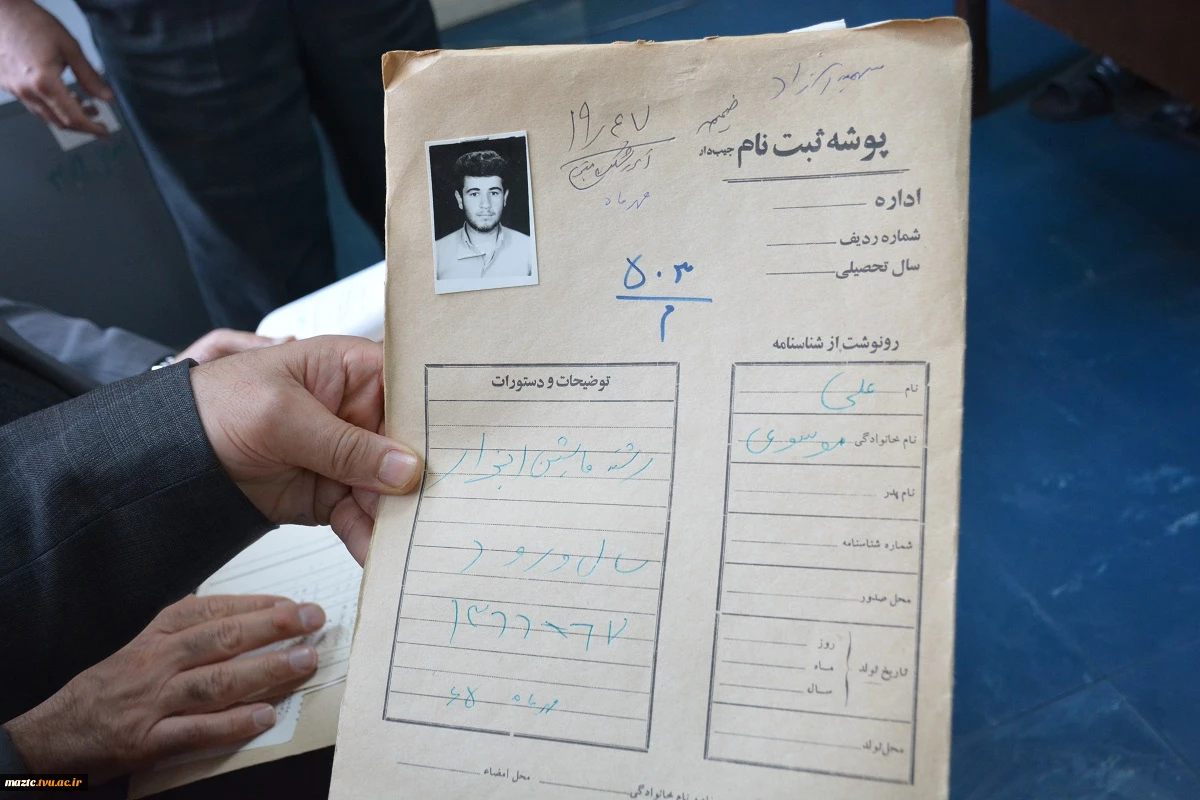 ضمیمه
۱۹/۶۷
مهرماه
پوشه ثبت نام جیب‌دار
اداره
شماره ردیف
سال تحصیلی
۵۰۳
م
رونوشت از شناسنامه
نام علی
نام خانوادگی موسوی
نام پدر
شماره شناسنامه
محل صدور
تاریخ تولد
روز
ماه
سال
محل تولد
توضیحات و دستورات
رشته ماشین ابزار
سال ورود
۱۳۶۶-۶۷
مهرماه ۶۵
محل امضاء
نام خانوادگی
maztc.tvu.ac.ir